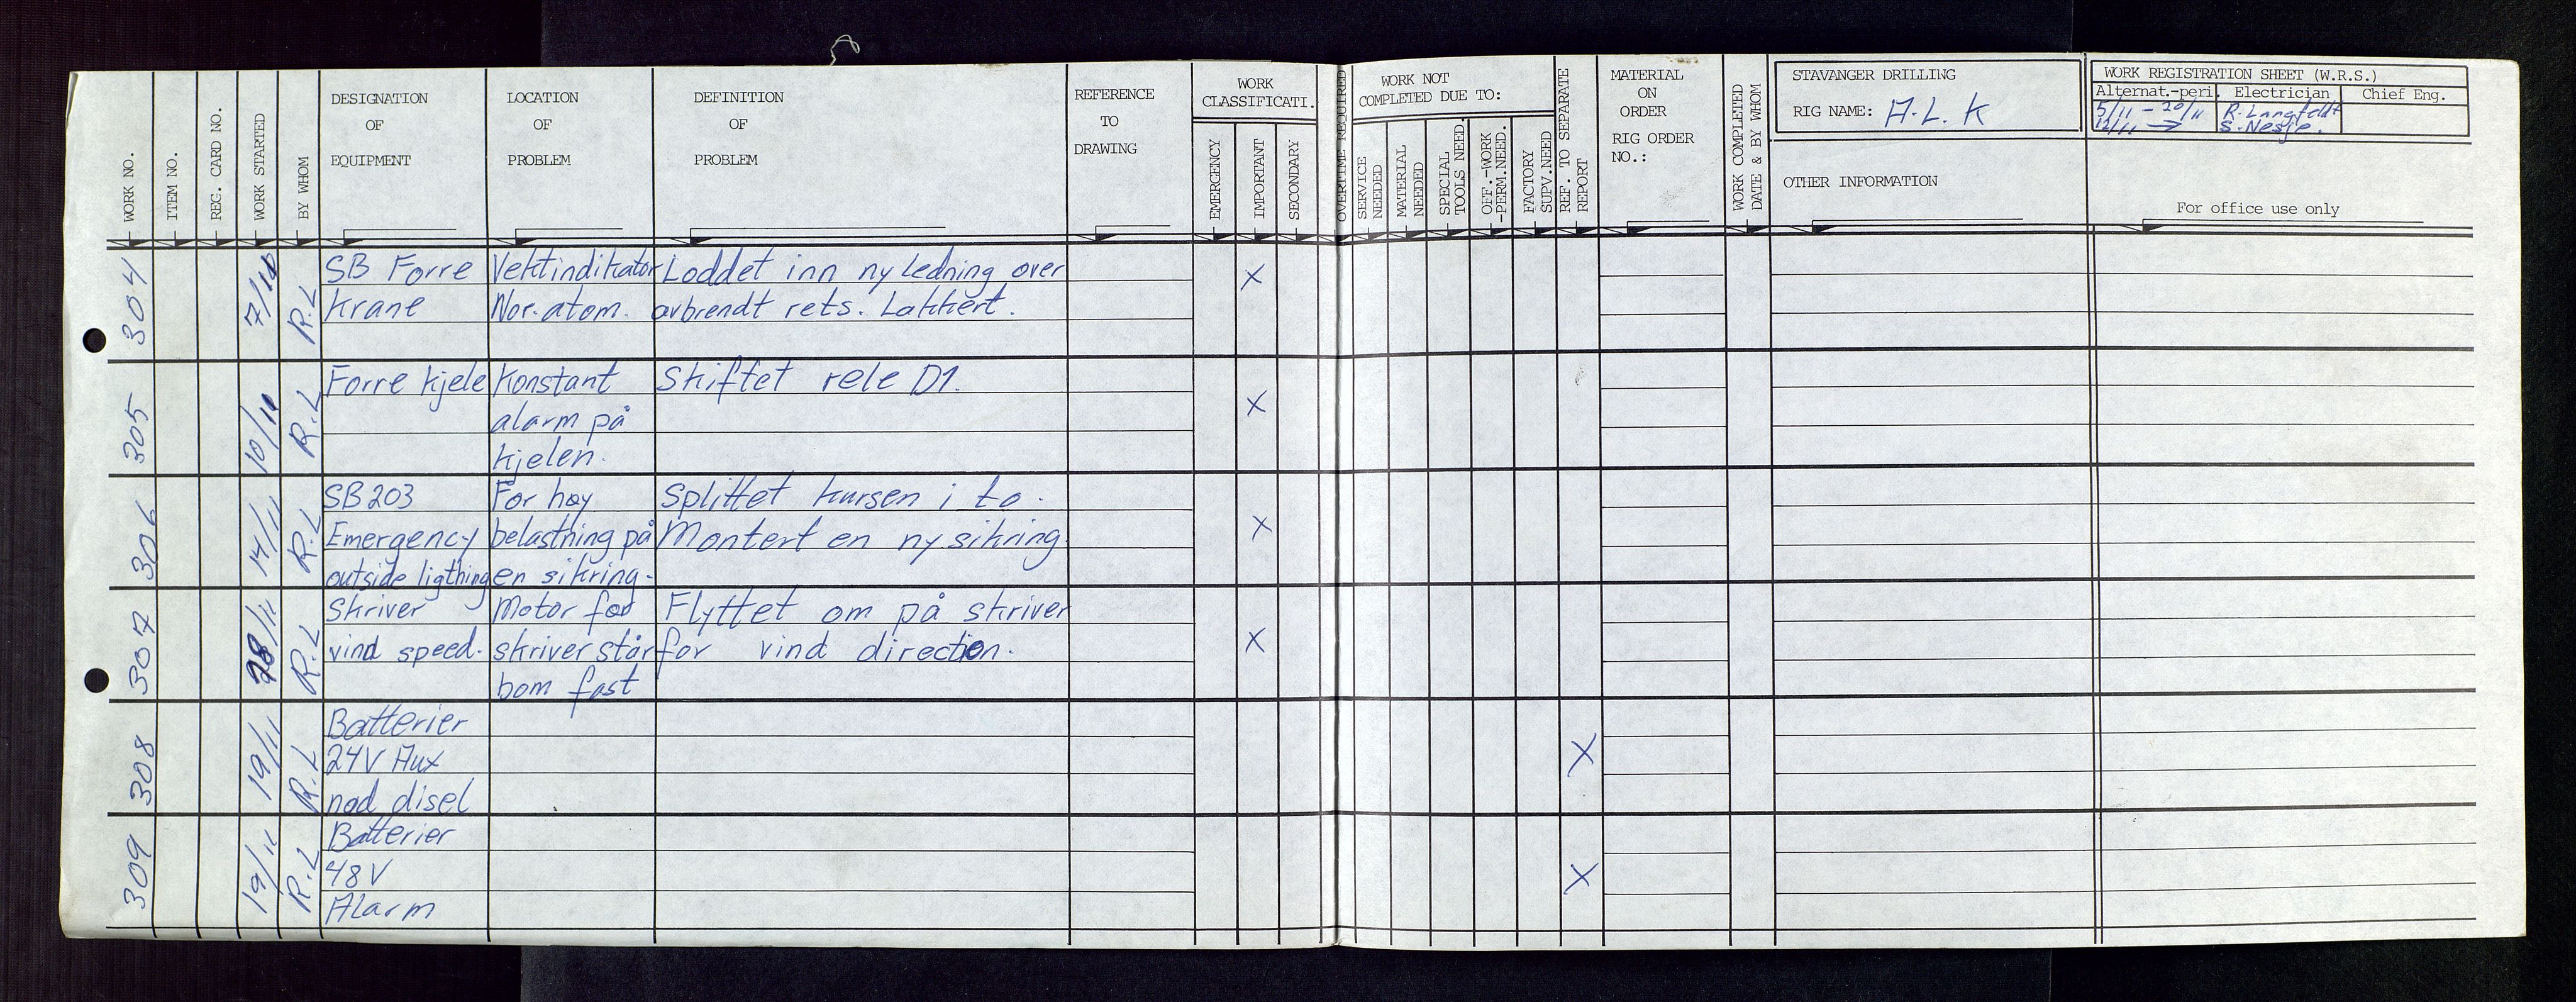 WORK NO.
ITEM NO.
REG. CARD NO.
WORK STARTED
BY WHOM
DESIGNATION
OF
EQUIPMENT
LOCATION
OF
PROBLEM
DEFINITION
OF
PROBLEM
REFERENCE
TO
DRAWING
WORK
CLASSIFICATI.
EMERGENCY
IMPORTANT
SECONDARY
OVERTIME REQUIRED
WORK NOT
COMPLETED DUE TO:
SERVICE
NEEDED
MATERIAL
NEEDED
SPECIAL
TOOLS NEED.
OFF.-WORK
-PERM.NEED.
FACTORY
SUPV.NEED
REF. TO SEPARATE
REPORT
MATERIAL
ON
ORDER
RIG ORDER
NO.:
WORK COMPLETED
DATE & BY WHOM
STAVANGER DRILLING
RIG NAME: A.L.K
OTHER INFORMATION
WORK REGISTRATION SHEET (W.R.S.)
Alternat.-peri. Electrician Chief Eng.
5/11 - 20/11 R. Langfeldt
12/11 → S. Nesje.
For office use only
304 7/11 R.L
SB Forre Vektindikator Loddet inn ny ledning over X
krane Nor.atom. avbrendt rets. Lakkert.
305 10/11 R.L
Forre kjele Konstant Skiftet rele D1.
alarm på X
kjelen.
306 14/11 R.L
SB 203 For høy Splittet kursen i to.
Emergency belastning på Montert en ny sikring. X
outside ligthing en sikring.
307 18/11 R.L
Skriver Motor for Flyttet om på skriver
vind speed. skriver står for vind direction. X
bom fast
308 19/11 R.L
Batterier
24V Aux X
nød disel
309 19/11 R.L
Batterier
48V X
Alarm